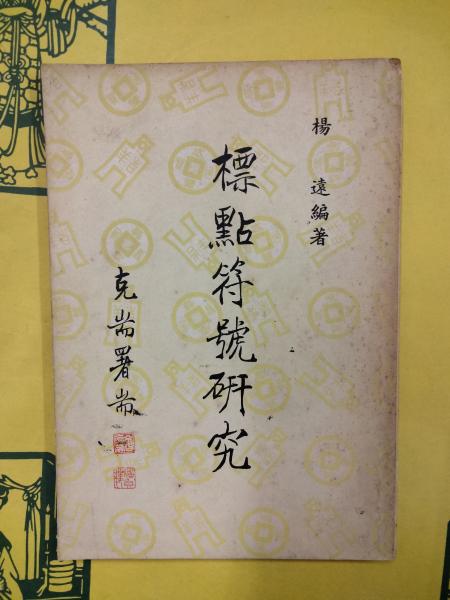 楊遠編著
標點符號研究
克耑署耑